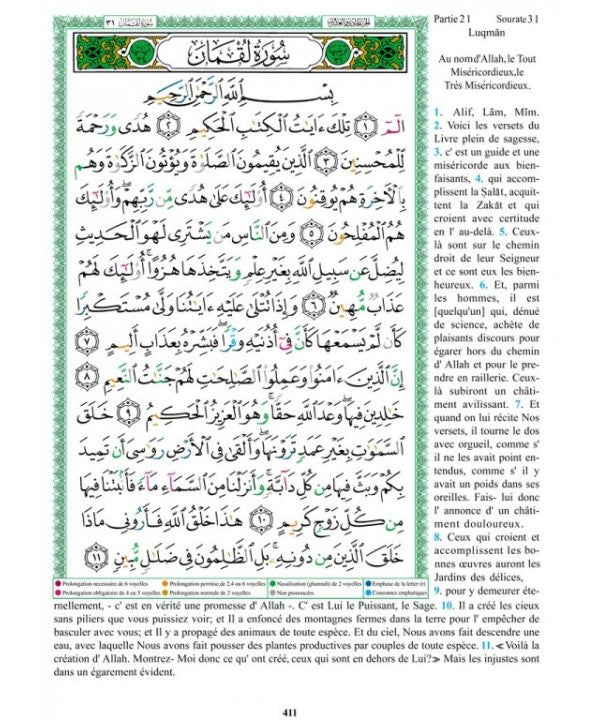 الجزء الحادي والعشرون
سورة لقمان ٣١
سُورَةُ لُقْمَان
بِسْمِ ٱللَّهِ ٱلرَّحْمَٰنِ ٱلرَّحِيمِ
الٓمٓ ١ تِلْكَ ءَايَٰتُ ٱلْكِتَٰبِ ٱلْحَكِيمِ ٢ هُدًى وَرَحْمَةً
لِّلْمُحْسِنِينَ ٣ ٱلَّذِينَ يُقِيمُونَ ٱلصَّلَوٰةَ وَيُؤْتُونَ ٱلزَّكَوٰةَ وَهُم
بِٱلْأَخِرَةِ هُمْ يُوقِنُونَ ٤ أُوْلَٰٓئِكَ عَلَىٰ هُدًى مِّن رَّبِّهِمْ ۖ وَأُوْلَٰٓئِكَ
هُمُ ٱلْمُفْلِحُونَ ٥ وَمِنَ ٱلنَّاسِ مَن يَشْتَرِى لَهْوَ ٱلْحَدِيثِ
لِيُضِلَّ عَن سَبِيلِ ٱللَّهِ بِغَيْرِ عِلْمٍ وَيَتَّخِذَهَا هُزُوًا ۚ أُوْلَٰٓئِكَ لَهُمْ
عَذَابٌ مُّهِينٌ ٦ وَإِذَا تُتْلَىٰ عَلَيْهِ ءَايَٰتُنَا وَلَّىٰ مُسْتَكْبِرًا
كَأَن لَّمْ يَسْمَعْهَا كَأَنَّ فِىٓ أُذُنَيْهِ وَقْرًا ۖ فَبَشِّرْهُ بِعَذَابٍ أَلِيمٍ ٧
إِنَّ ٱلَّذِينَ ءَامَنُوا۟ وَعَمِلُوا۟ ٱلصَّٰلِحَٰتِ لَهُمْ جَنَّٰتُ ٱلنَّعِيمِ ٨
خَٰلِدِينَ فِيهَا ۖ وَعْدَ ٱللَّهِ حَقًّا ۚ وَهُوَ ٱلْعَزِيزُ ٱلْحَكِيمُ ٩ خَلَقَ
ٱلسَّمَٰوَٰتِ بِغَيْرِ عَمَدٍ تَرَوْنَهَا ۖ وَأَلْقَىٰ فِى ٱلْأَرْضِ رَوَٰسِىَ أَن تَمِيدَ
بِكُمْ وَبَثَّ فِيهَا مِن كُلِّ دَآبَّةٍ ۚ وَأَنزَلْنَا مِنَ ٱلسَّمَآءِ مَآءً فَأَنۢبَتْنَا فِيهَا
مِن كُلِّ زَوْجٍ كَرِيمٍ ١٠ هَٰذَا خَلْقُ ٱللَّهِ فَأَرُونِى مَاذَا
خَلَقَ ٱلَّذِينَ مِن دُونِهِۦ ۚ بَلِ ٱلظَّٰلِمُونَ فِى ضَلَٰلٍ مُّبِينٍ ١١
Prolongation necessaire de 6 voyelles
Prolongation permise de 2,4 ou 6 voyelles
Nasalisation (ghunnah) de 2 voyelles
Emphase de la lettre (r)
Prolongation obligatoire de 4 ou 5 voyelles
Prolongation normale de 2 voyelles
Non prononcées
Consonnes emphatiques
Partie 21 Sourate 31
Luqmān
Au nom d'Allah, le Tout
Miséricordieux,le
Très Miséricordieux.
1. Alif, Lām, Mīm.
2. Voici les versets du
Livre plein de sagesse,
3. c' est un guide et une
miséricorde aux bien-
faisants, 4. qui accom-
plissent la Ṣalāt, acquit-
tent la Zakāt et qui
croient avec certitude
en l' au-delà. 5. Ceux-
là sont sur le chemin
droit de leur Seigneur
et ce sont eux les bien-
heureux. 6. Et, parmi
les hommes, il est
[quelqu'un] qui, dénué
de science, achète de
plaisants discours pour
égarer hors du chemin
d' Allah et pour le pre-
ndre en raillerie. Ceux-
là subiront un châti-
ment avilissant. 7. Et
quand on lui récite Nos
versets, il tourne le dos
avec orgueil, comme s'
il ne les avait point en-
tendus, comme s' il y
avait un poids dans ses
oreilles. Fais- lui donc
l' annonce d' un châti-
ment douloureux.
8. Ceux qui croient et
accomplissent les bo-
nnes œuvres auront les
Jardins des délices,
9. pour y demeurer éte-
rnellement, - c' est en vérité une promesse d' Allah -. C' est Lui le Puissant, le Sage. 10. Il a créé les cieux
sans piliers que vous puissiez voir; et Il a enfoncé des montagnes fermes dans la terre pour l' empêcher de
basculer avec vous; et Il y a propagé des animaux de toute espèce. Et du ciel, Nous avons fait descendre une
eau, avec laquelle Nous avons fait pousser des plantes productives par couples de toute espèce. 11. ≪Voilà la
création d' Allah. Montrez- Moi donc ce qu' ont créé, ceux qui sont en dehors de Lui?≫ Mais les injustes sont
dans un égarement évident.
411